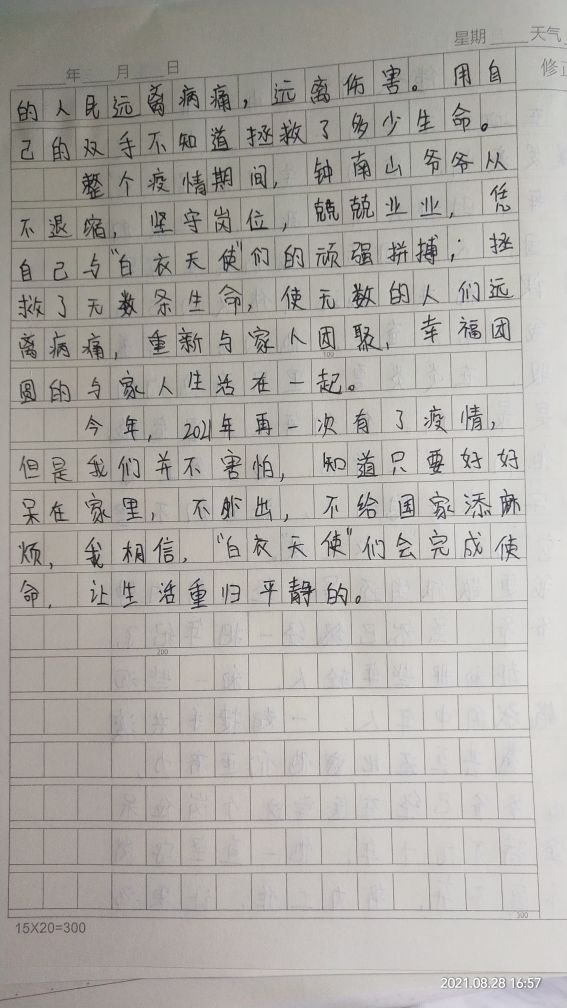 星期 天气
年 月 日
修正
的人民远离病痛，远离伤害。用自
己的双手不知道拯救了多少生命。
整个疫情期间，钟南山爷爷从
不退缩，坚守岗位，兢兢业业，凭
自己与“白衣天使”们的顽强拼搏；拯
救了无数条生命，使无数的人们远
离病痛，重新与家人团聚，幸福团
100
圆的与家人生活在一起。
今年，2021年再一次有了疫情，
但是我们并不害怕，知道只要好好
呆在家里，不外出，不给国家添麻
烦，我相信，“白衣天使”们会完成使
命，让生活重归平静的。
200
300
15X20=300
2021.08.28 16:57